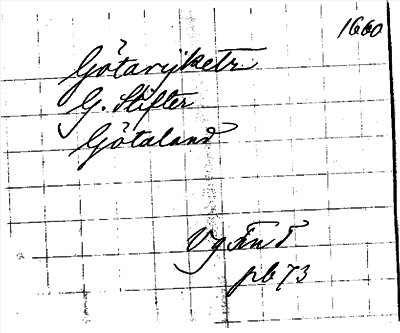 1660
Götarijketr
G. Stifter
Götaland
Vg Fn T
pb 73